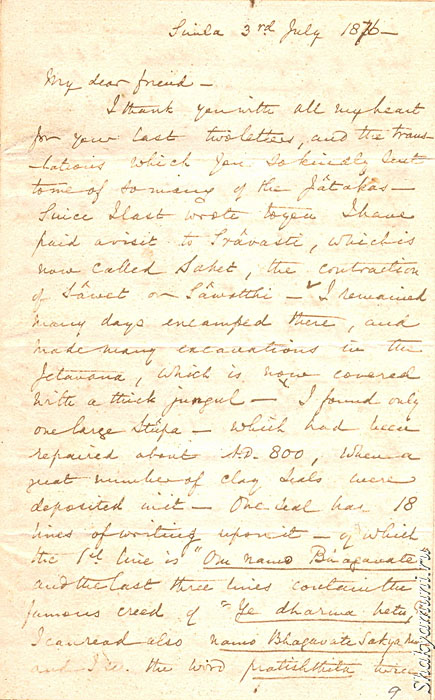 Simla 3rd July 1876 -
My dear friend -
I thank you with all my heart
for your last two letters, and the trans
-lations which you so kindly sent
to me of so many of the Jâtakas -
Since I last wrote to you I have
paid a visit to Srâvasti, which is
now called Sahet, the contraction
of Sâwet or Sâwatthi - I remained
many days encamped there, and
made many excavations in the
Jetavana, which is now covered
with a thick jungul - I found only
one large Stupa - which had been
repaired about A.D. 800, when a
great number of clay seals were
deposited in it - One seal has 18
lines of writing upon it - of which
the 1st line is "Om namo Bhagavate
and the last three lines contain the
famous creed of "Ye dharma hetu
I can read also namo Bhagavate Sakya
and the word pratishthita
9
Shakyamuni.ru